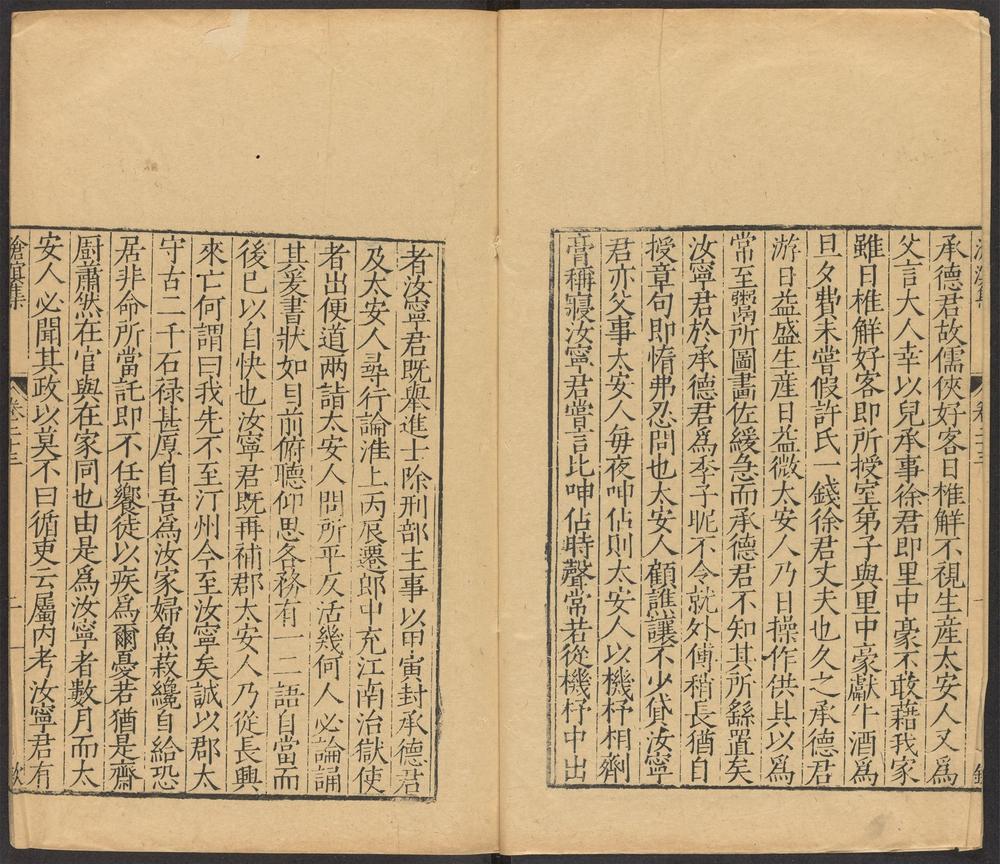 承德君故儒俠好客日椎鮮不視生産太安人又爲
父言大人幸以兒承事徐君即里中豪不敢藉我家
雖日椎鮮好客即所授室弟子與里中豪獻牛酒爲
旦夕費未嘗假許氏一錢徐君丈夫也久之承德君
游日益盛生産日益微太安人乃日操作供具以爲
常至鬻所圖畫佐緩急而承德君不知其所繇置矣
汝寧君於承德君爲季子昵不令就外傅稍長猶自
授章句即惰弗忍問也太安人顧譙讓不少貸汝寧
君亦父事太安人每夜呻佔則太安人以機杼相劑
膏稱寢汝寧君嘗言比呻佔時聲常若從機杼中出
者汝寧君既舉進士除刑部主事以甲寅封承德君
及太安人尋行論淮上丙辰遷郎中充江南治獄使
者出便道兩詣太安人問所平反活幾何人必論誦
其爰書狀如目前俯聽仰思各務有一二語自當而
後已以自快也汝寧君既再補郡太安人乃從長興
來亡何謂曰我先不至汀州今至汝寧矣誠以郡太
守古二千石禄甚厚自吾爲汝家婦魚菽纔自給恐
居非命所當託即不任饗徒以疾爲爾憂若猶是齋
厨蕭然在官與在家同也由是爲汝寧者數月而太
安人必聞其政以莫不曰循吏云屬內考汝寧君有
滄溟集 卷二十三